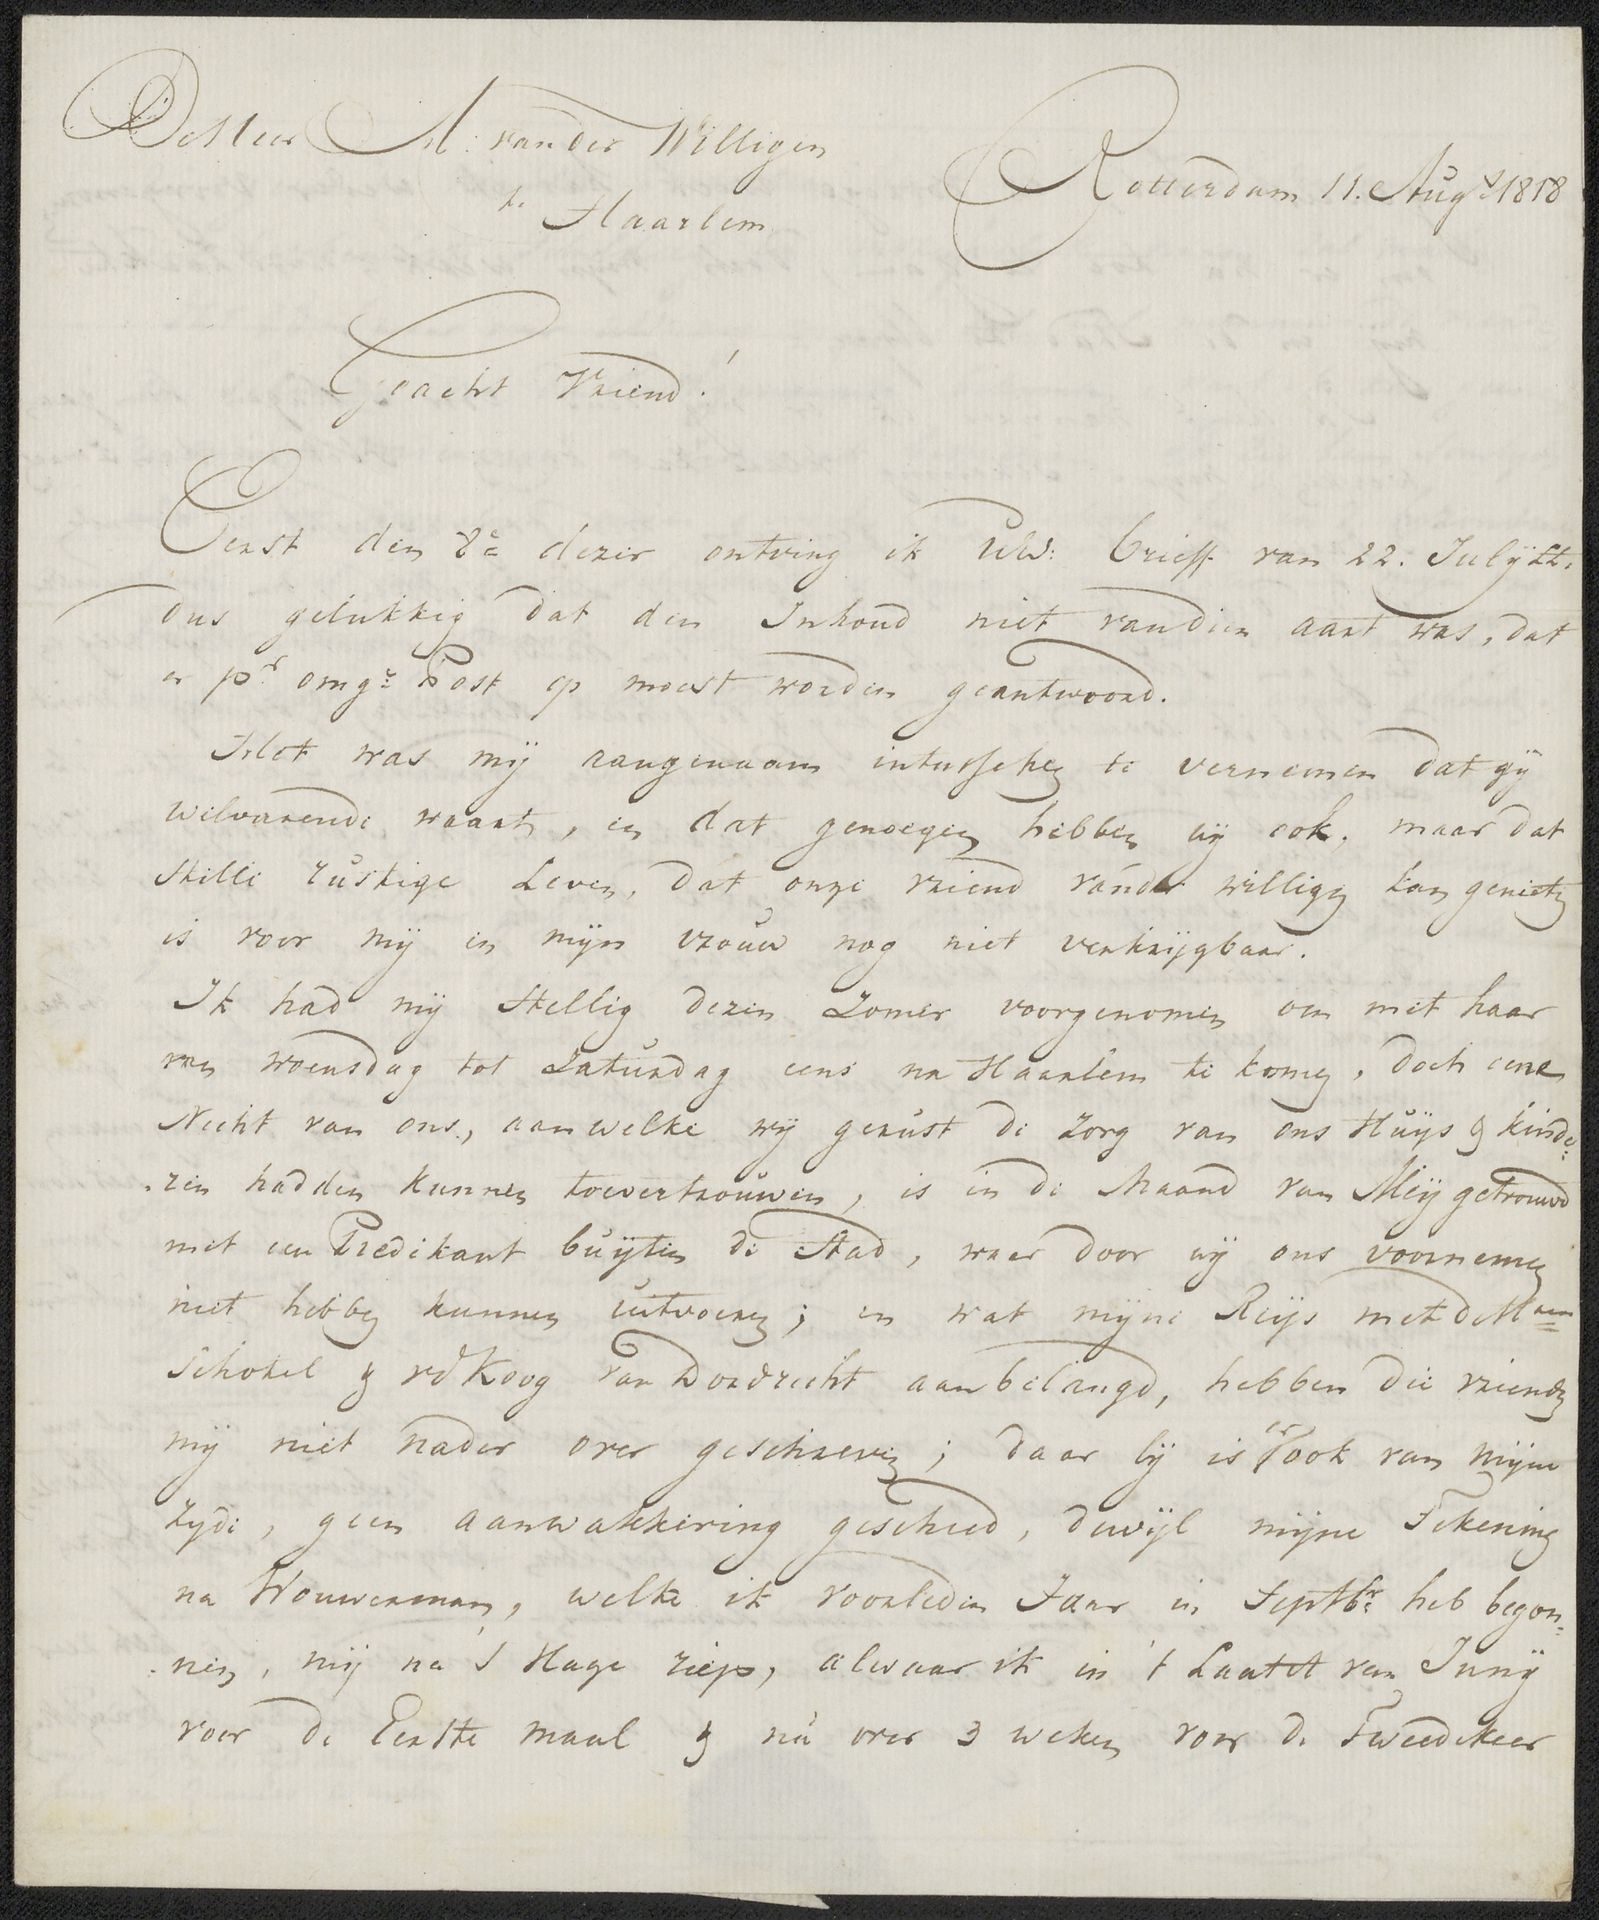 De Heer A: van der Willigen
te Haarlem
Rotterdam 11. Augs 1818
Geacht Vriend!
Eerst den 8e dezer ontving ik UW: brieff van 22. Julij ll.
dus gelukkig dat den Inhoud niet van dien aart was, dat
er pr omge Post op moest worden geantwoord.
Het was mij aangenaam intusschen te vernemen dat gij
welvarende waart, en dat genoegen hebben wij ook, maar dat
stille rustige Leven, dat onze vriend vander willigen kan genieten
is voor mij en mijn vrouw nog niet verkrijgbaar.
Ik had mij stellig dezen Zomer voorgenomen om met haar
van woensdag tot Zaturdag eens na Haarlem te komen, doch eene
Nicht van ons, aan welke wij gerust de zorg van ons Huijs & kinde=
ren hadden kunnen toevertrouwen, is in de Maand van Meij getrouwd
met een Predikant buijten de Stad, waar door wij ons voornemen
niet hebben kunnen uitvoeren; en wat mijne Reijs met de Hren
Schotel & vd Koog van Dordrecht aanbelangd, hebben die vrienden
mij niet nader over geschreven; daar bij is er ook van mijne
zyde, geen aanwakkering geschied, dewijl mijne Tekening
na Wouwerman, welke ik voorleden Jaar in Septbr heb begon=
nen, mij na 's Hage riep, alwaar ik in 't Laatst van Junij
voor de Eerste maal & nu over 3 weken voor de Tweede keer